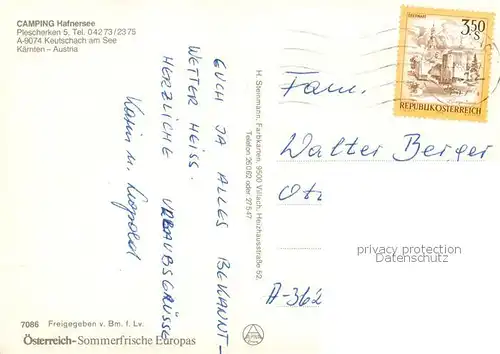 CAMPING Hafnersee
Plescherken 5, Tel. 04273/2375
A-9074 Keutschach am See
Kärnten – Austria
EUCH JA ALLES BEKANNT-
WETTER HEISS.
HERZLICHE URLAUBSGRÜSSE
Karin u. Leopold
H. Steinmann, Farbkarten, 9500 Villach, Heizhausstraße 52,
Telefon 25062 oder 27547
3.50
S
REPUBLIK ÖSTERREICH
Fam.
Walter Berger
A-362
privacy protection
Datenschutz
7086 Freigegeben v. Bm. f. Lv.
Österreich-Sommerfrische Europas